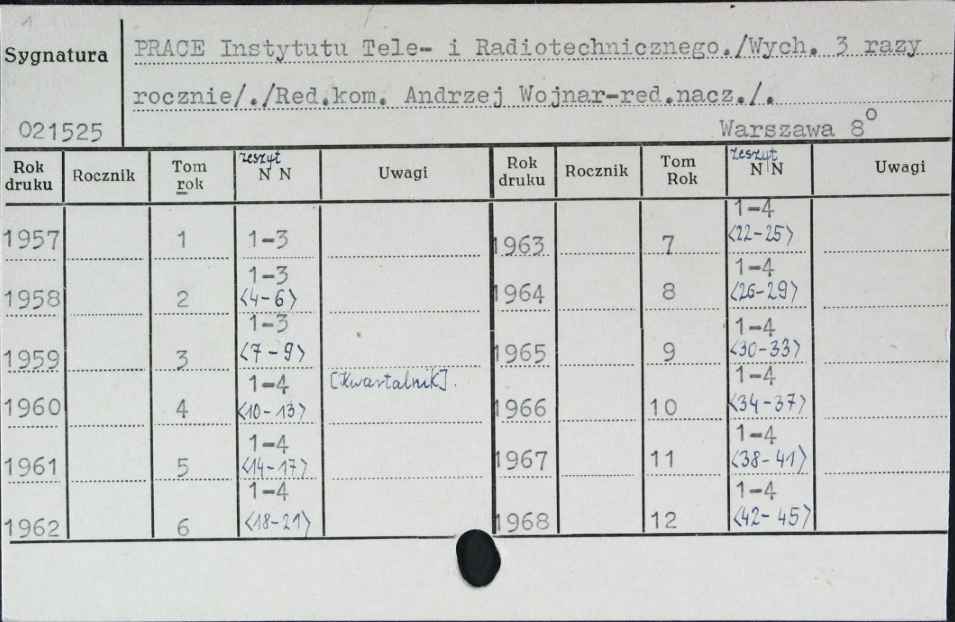 1
Sygnatura PRACE Instytutu Tele- i Radiotechnicznego./Wych. 3 razy
rocznie/./Red.kom. Andrzej Wojnar-red.nacz./.
021525 Warszawa 8°
Rok druku Rocznik Tom rok zeszyt N N Uwagi Rok druku Rocznik Tom Rok zeszyt N N Uwagi
1957 1 1-3 1963 7 1-4 <22-25>
1958 2 1-3 <4-6> 1964 8 1-4 <26-29>
1959 3 1-3 <7-9> 1965 9 1-4 <30-33>
1960 4 1-4 <10-13> [Kwartalnik]. 1966 10 1-4 <34-37>
1961 5 1-4 <14-17> 1967 11 1-4 <38-41>
1962 6 1-4 <18-21> 1968 12 1-4 <42-45>